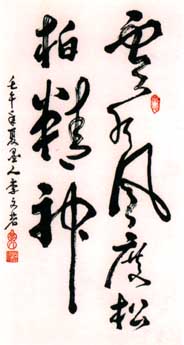 雲水風度松
柏精神
壬午年夏墨人李